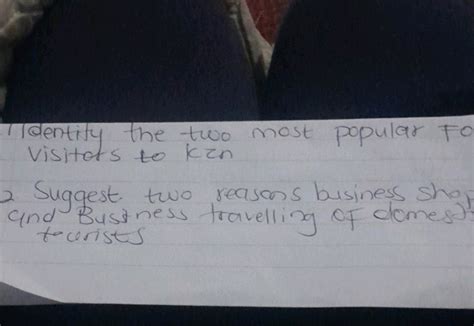 1 Identify the two most popular Fo
visitors to Kzn
2 Suggest two reasons business shop
and Business travelling of domest
tourists